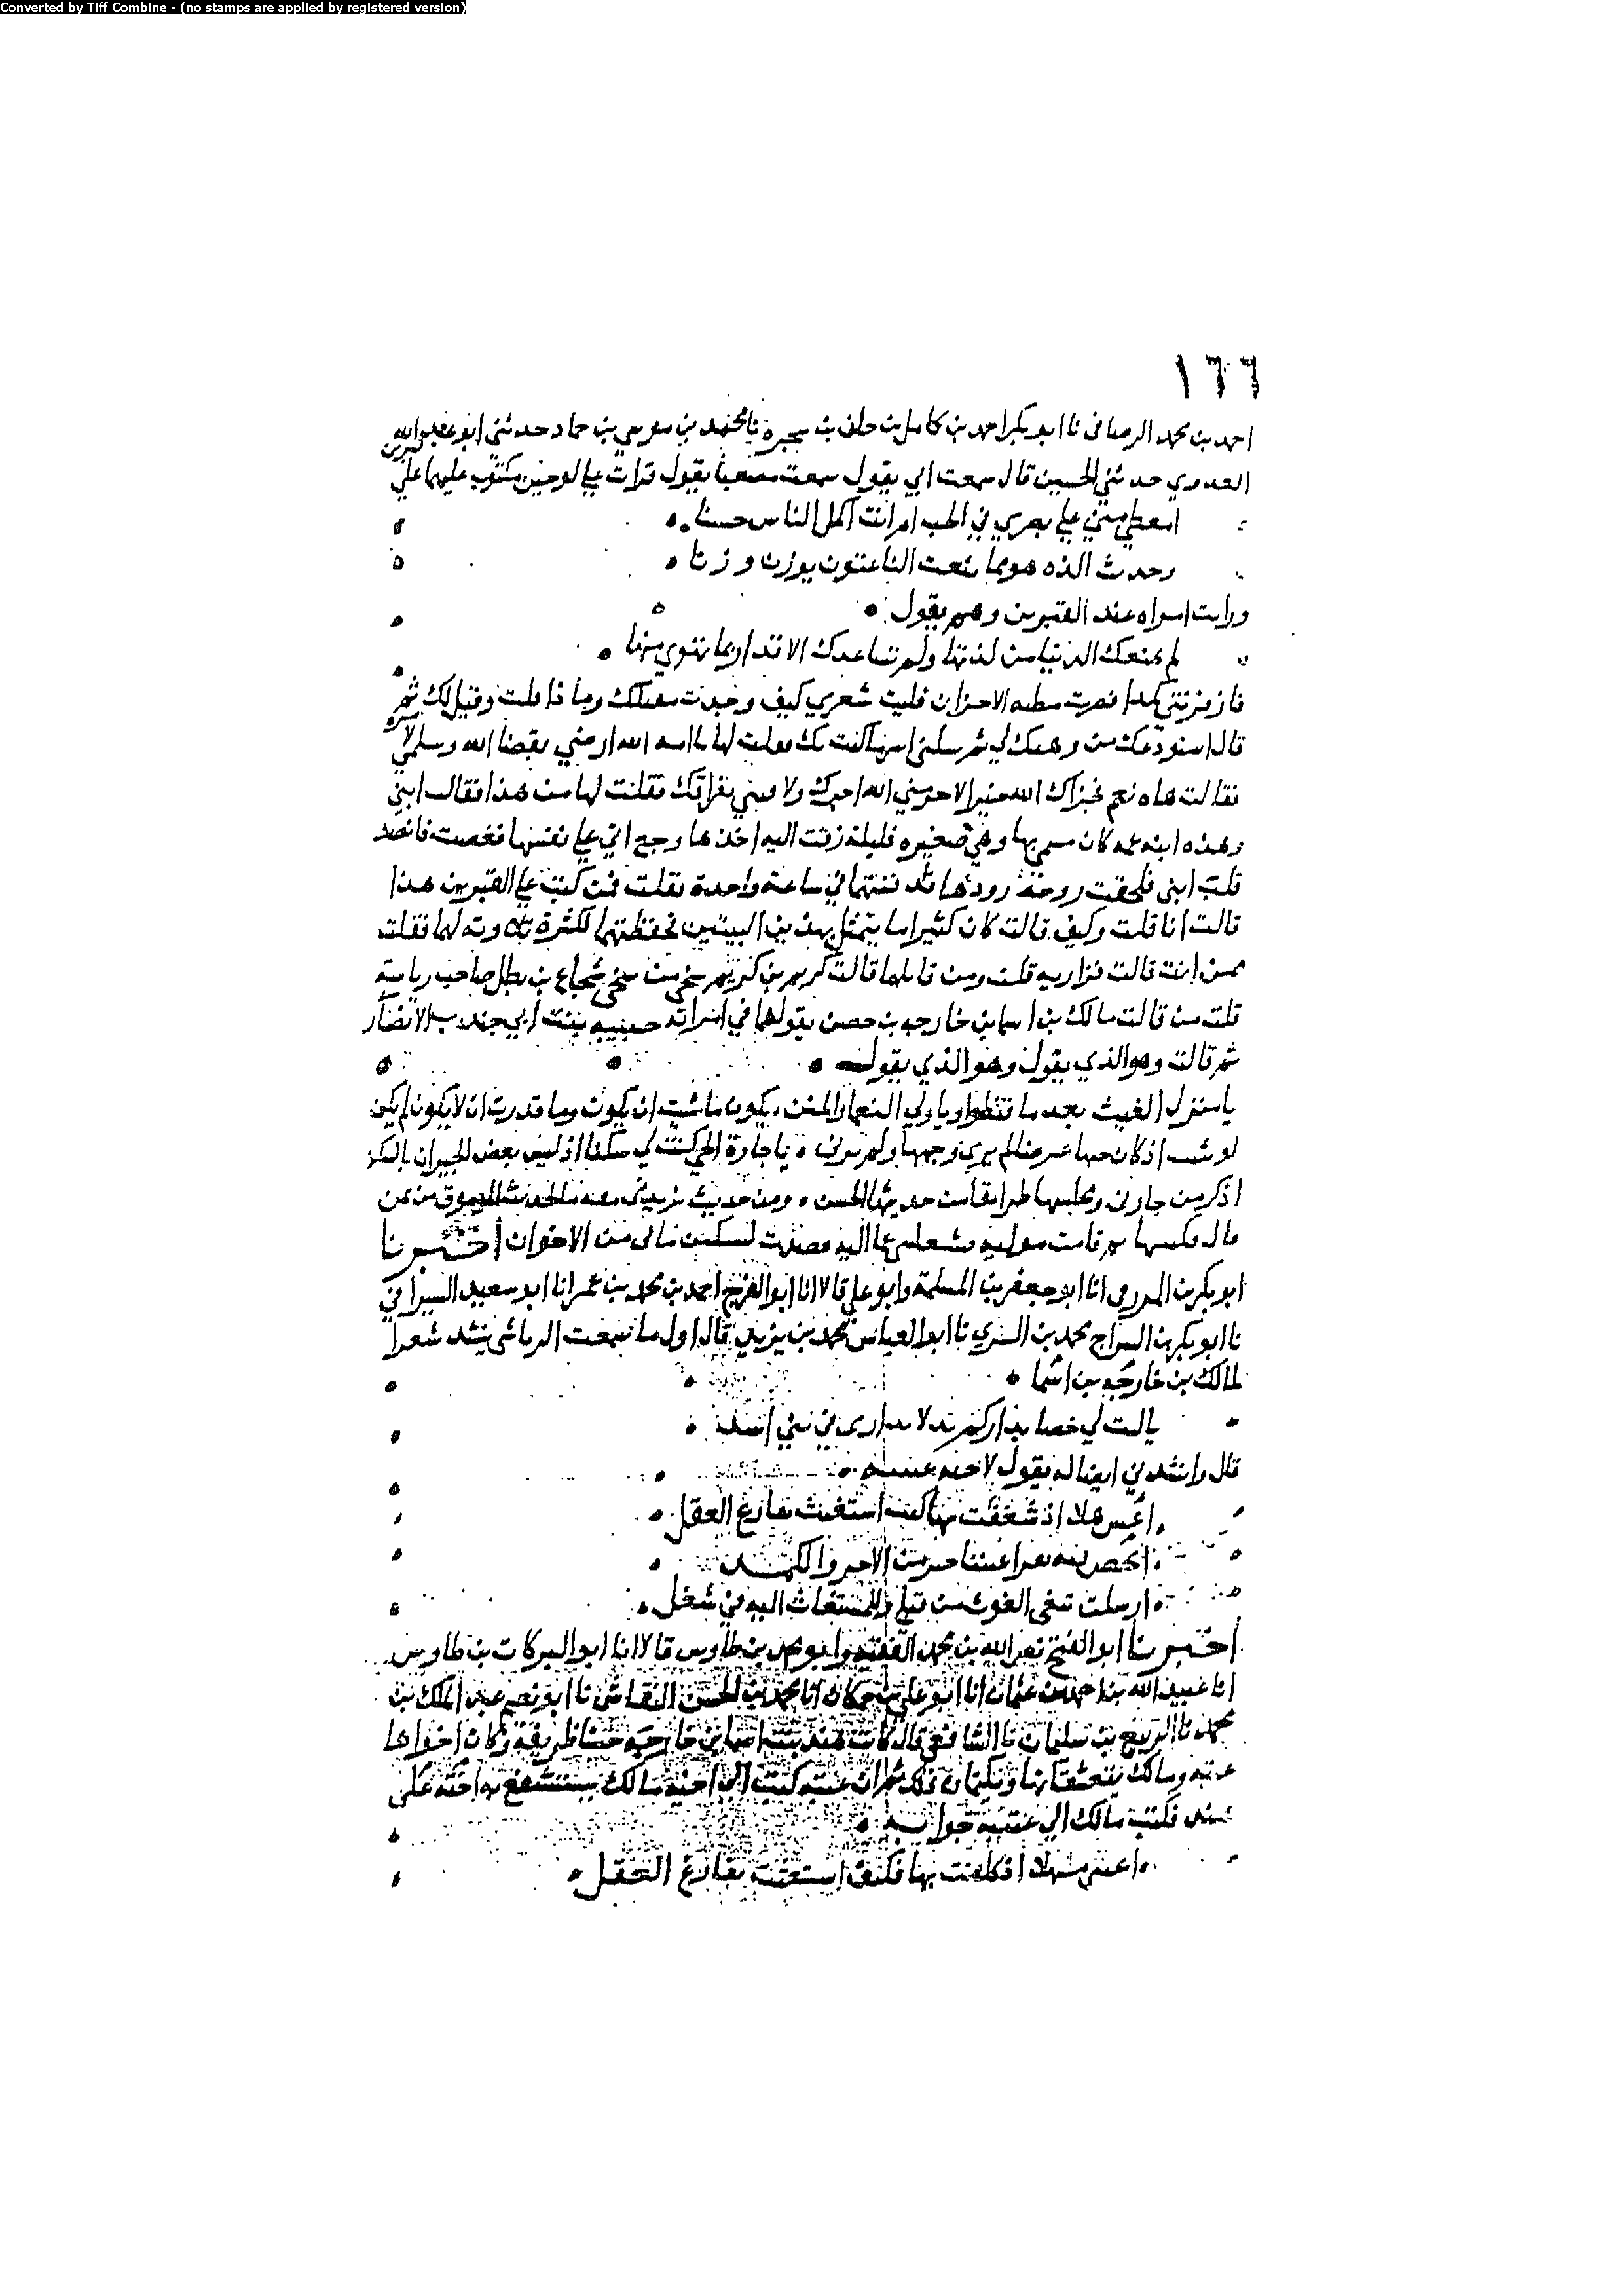 Converted by Tiff Combine - (no stamps are applied by registered version)
١٦٦
احمد بن محمد الرصافى نا ابو بكر احمد بن كامل بن خلف بن شجرة نا محمد بن موسى بن حماد حدثني ابو عبد الله
العدوي حدثني الحسين قال سمعت ابي يقول سمعت مصعبا يقول قرات علي لوحين مكتوب عليهما علي قبرين
امغطي مني علي بصري في الحب ام انت اكمل الناس حسنا
وحديث الذه هو مما ينعت الناعتون يوزن وزنا
ورايت امراه عند القبرين وهي تقول
لم يمتعك الدنيا من لذتها ولم تساعدك الاقدار بما تهوي منها
فليت شعري كيف وجدت مقيلك وماذا قلت وقيل لك ثم
قال استودعك من وهبك لي ثم سلبني اسر ما كنت بك فقلت لها يا امه الله ارضي بقضا الله وسلمي لامره
فقالت هاه نعم فجزاك الله خيرا لا حرمني الله اجرك ولا فتنني بفراقك فقلت لها من هذا فقالت ابني
وهذه ابنه عمه كان سمي بها وهي صغيره فليلة زفت اليه اخذها وجع اتي علي نفسها فقضت فانصدع
قلب ابني فلحقت روحه روحها فدفنتهما في ساعة واحدة فقلت فمن كتب علي القبرين هذا
قالت انا قلت وكيف قالت كان كثيرا ما يتمثل بهذين البيتين فحفظتهما لكثرة تلاوته لهما فقلت
ممن انت قالت فزاريه قلت ومن قايلها قالت كريم بن كريم سخي بن سخي شجاع بن بطل صاحب رياسة
قلت من قالت مالك بن اسما بن خارجه بن حصن يقولها في امراته حبيبه بنت ابي جندب الانصاري
ثم قالت وهو الذي يقول وهو الذي يقول
يا منزل الغيث بعد ما قنطوا ويا ولي النعما والمنن يكون ما شيت ان يكون وما قدرت ان لا يكون لم يكن
لو شيت اذ كان حبها عرضا لم يرني وجهها ولم ترني يا جارة الحي كنت لي سكنا اذ ليس بعض الجيران بالسكن
اذكر من جارتي ومجلسها طرايفا من حديثها الحسن ومن حديث يزيدني مقه ما لحديث الموموق من ثمن
قال فكتبتها ثم قامت مولية
ابو بكر بن المزرفي انا ابو جعفر بن المسلمة وابو علي قالا انا ابو الفرج احمد بن محمد بن عمر انا ابو سعيد السيرافي
نا ابو بكر بن السراج محمد بن السري نا ابو العباس محمد بن يزيد قال اول ما سمعت الرياشي ينشد شعرا
لمالك بن خارجه بن اسما
يا ليت لي خصا بداركم بدلا بداري في بني اسد
قال وانشدني ايضا له يقول لاخيه عيينه
اعيين هلا اذ شغفت بها كنت استغثت بفارغ العقل
ارسلت تبغي الغوث من قبلي والمستغاث اليه في شغل
اخبرنا ابو الفتح نصر الله بن محمد الفقيه وابو محمد بن طاوس قالا انا ابو البركات بن طاوس
انا عبيد الله بن احمد بن عثمان انا ابو علي بن حمكان انا محمد بن الحسن النقاش نا ابو نعيم عبد الملك بن
محمد نا الربيع بن سليمان نا الشافعي قال كانت هند بنت اسما بن خارجه حسنا ظريفة وكان اخواها
عتبه ومالك يتعشقانها ويكتمان ذلك ثم ان عتبه كتب الي اخيه مالك يستشفع به اخته علي
هند فكتب مالك الي عتبه جوابه
اعيني هلا اذ كلفت بها فكنت استعنت بفارغ العقل